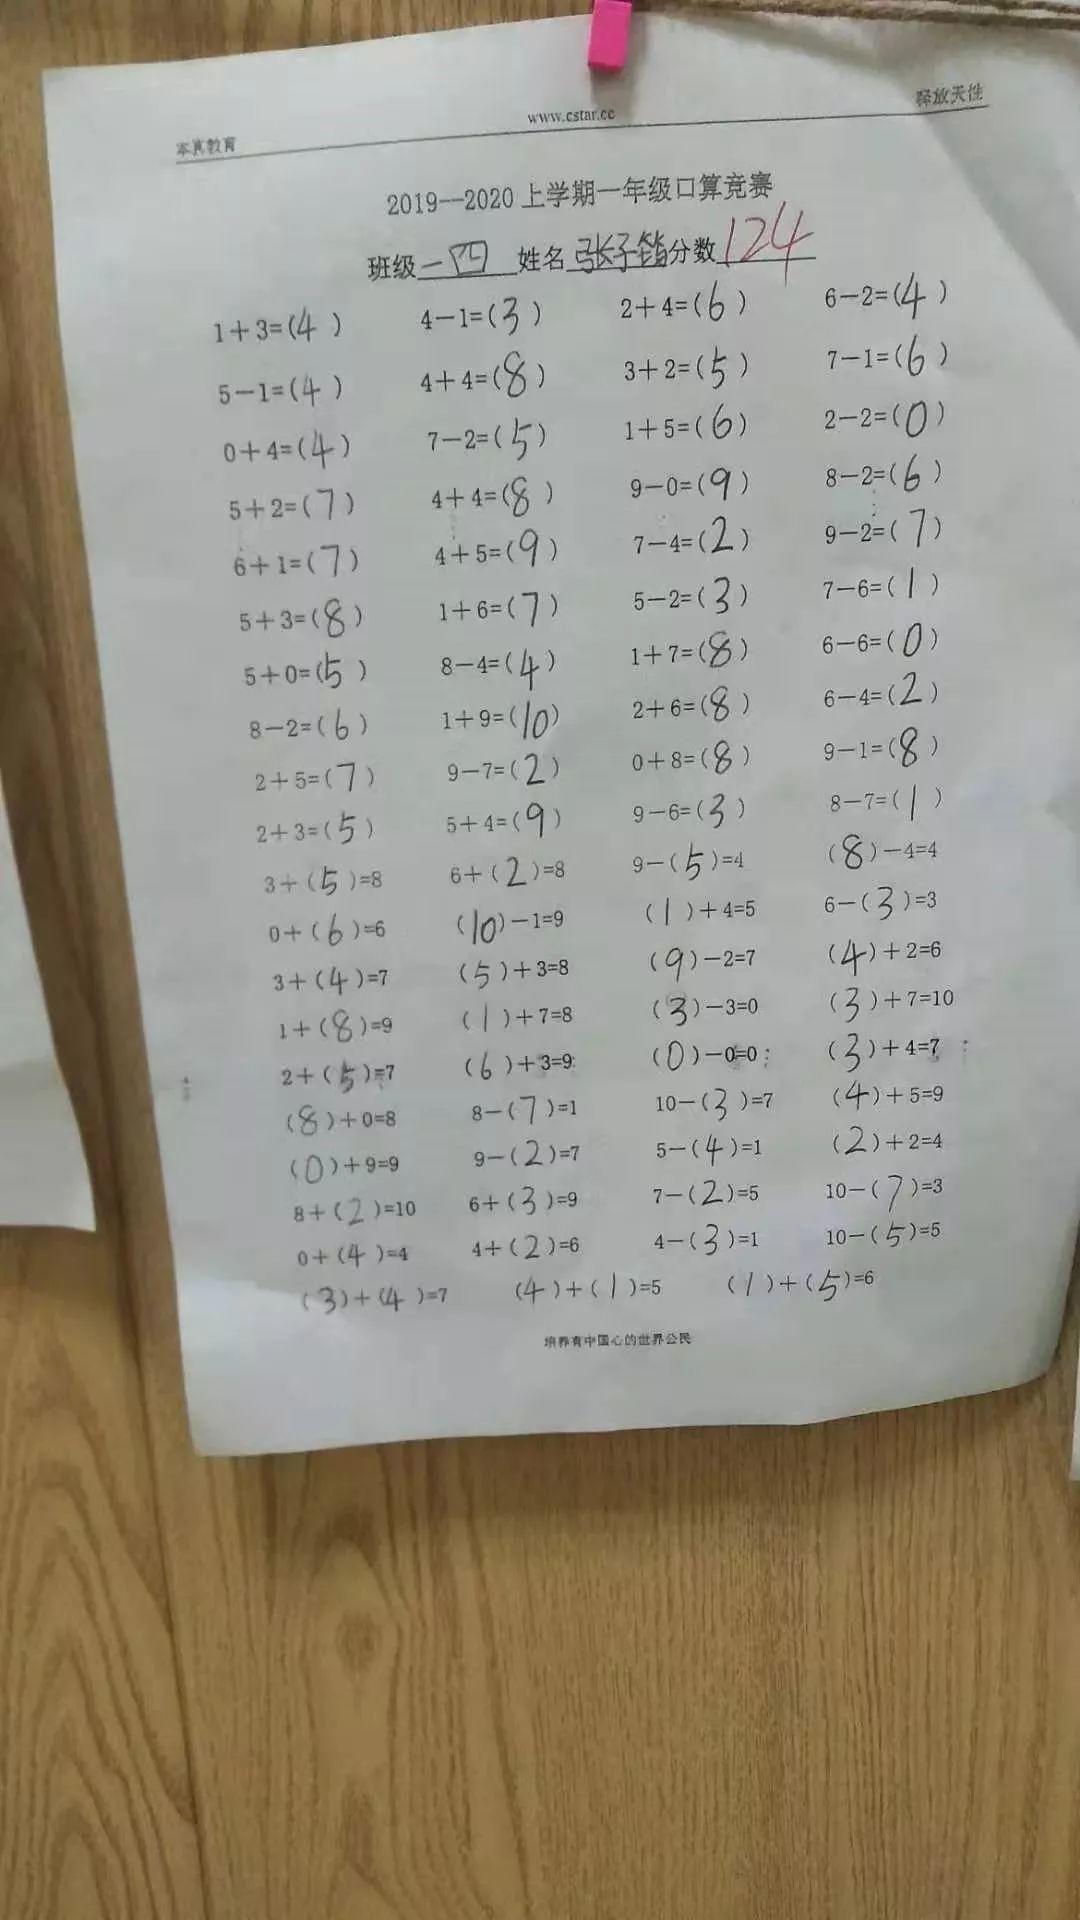 本真教育 www.cstar.cc 释放天性
2019--2020 上学期一年级口算竞赛
班级 一四 姓名 张子 分数 124
1+3=(4) 4-1=(3) 2+4=(6) 6-2=(4)
5-1=(4) 4+4=(8) 3+2=(5) 7-1=(6)
0+4=(4) 7-2=(5) 1+5=(6) 2-2=(0)
5+2=(7) 4+4=(8) 9-0=(9) 8-2=(6)
6+1=(7) 4+5=(9) 7-4=(2) 9-2=(7)
5+3=(8) 1+6=(7) 5-2=(3) 7-6=(1)
5+0=(5) 8-4=(4) 1+7=(8) 6-6=(0)
8-2=(6) 1+9=(10) 2+6=(8) 6-4=(2)
2+5=(7) 9-7=(2) 0+8=(8) 9-1=(8)
2+3=(5) 5+4=(9) 9-6=(3) 8-7=(1)
3+(5)=8 6+(2)=8 9-(5)=4 (8)-4=4
0+(6)=6 (10)-1=9 (1)+4=5 6-(3)=3
3+(4)=7 (5)+3=8 (9)-2=7 (4)+2=6
1+(8)=9 (1)+7=8 (3)-3=0 (3)+7=10
2+(5)=7 (6)+3=9 (0)-0=0 (3)+4=7
(8)+0=8 8-(7)=1 10-(3)=7 (4)+5=9
(0)+9=9 9-(2)=7 5-(4)=1 (2)+2=4
8+(2)=10 6+(3)=9 7-(2)=5 10-(7)=3
0+(4)=4 4+(2)=6 4-(3)=1 10-(5)=5
(3)+(4)=7 (4)+(1)=5 (1)+(5)=6
培养有中国心的世界公民